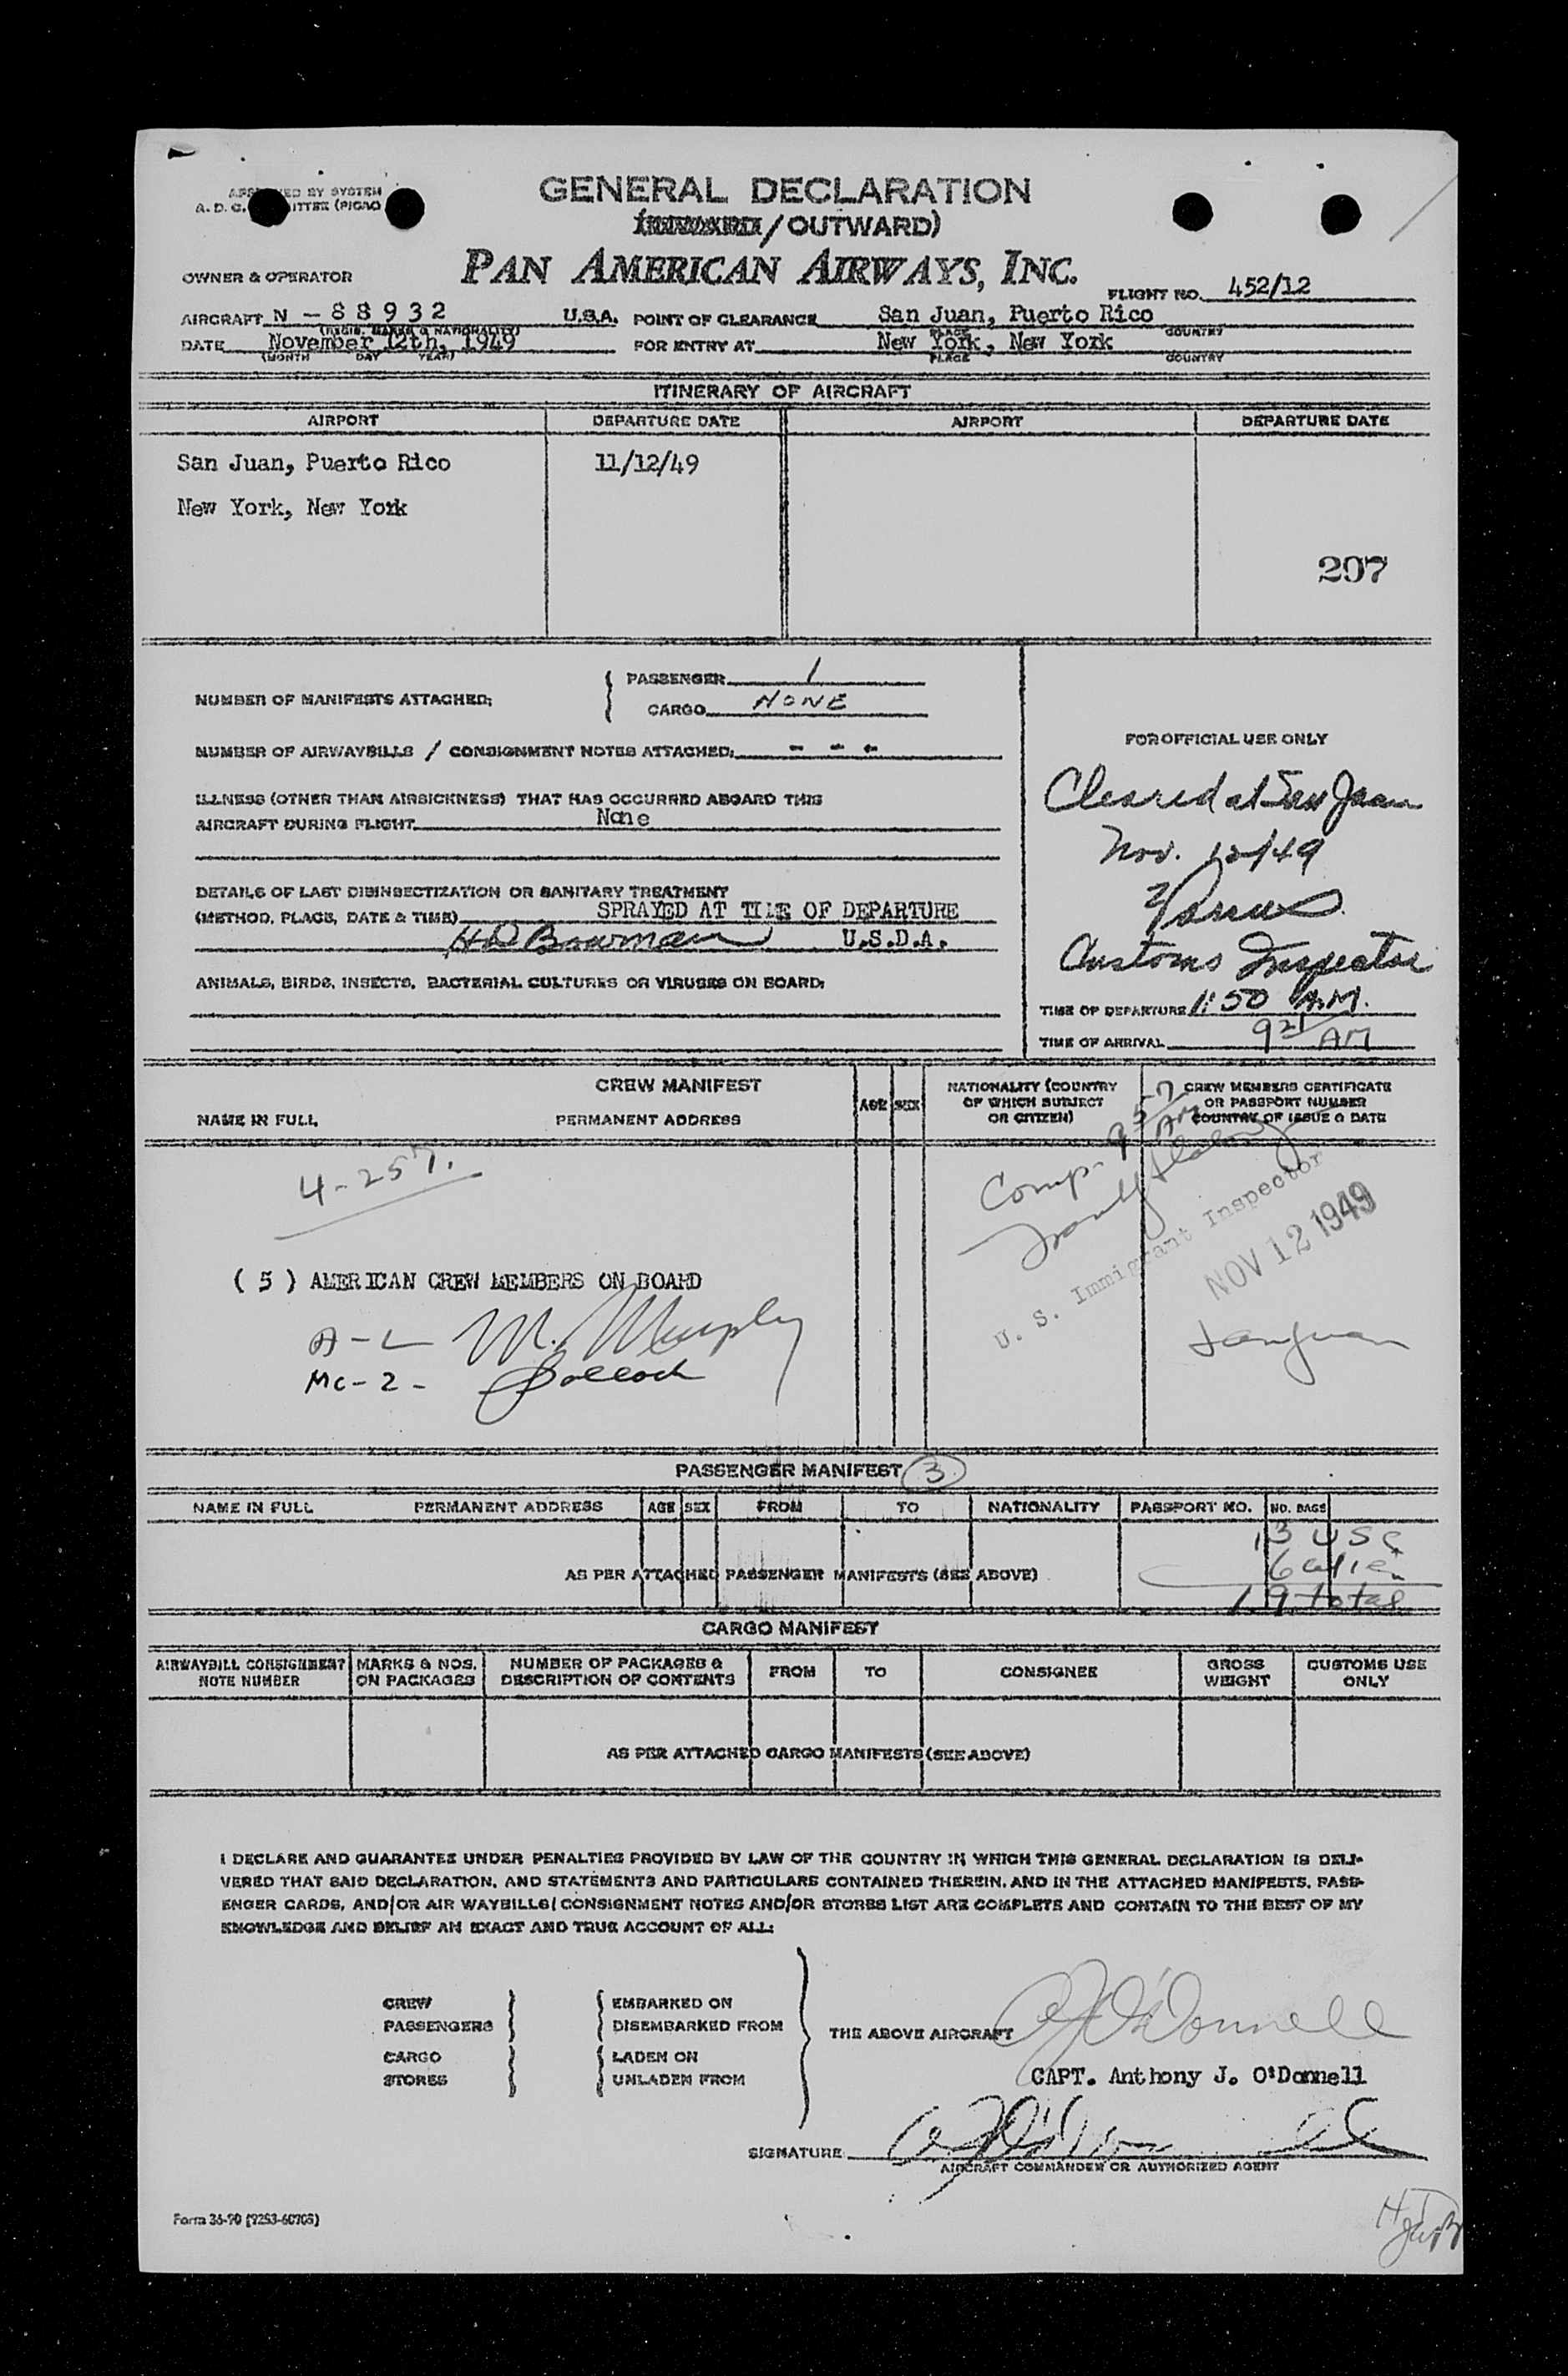 APPROVED BY SYSTEM
A. D. C. COMMITTEE (PICAO
GENERAL DECLARATION
(INWARD / OUTWARD)
OWNER & OPERATOR
PAN AMERICAN AIRWAYS, INC.
FLIGHT NO. 452/12
AIRCRAFT N - 88932 U.S.A. POINT OF CLEARANCE San Juan, Puerto Rico
(REGIS. MARKS & NATIONALITY) PLACE COUNTRY
DATE November 12th, 1949 FOR ENTRY AT New York, New York
(MONTH DAY YEAR) PLACE COUNTRY
ITINERARY OF AIRCRAFT
AIRPORT DEPARTURE DATE AIRPORT DEPARTURE DATE
San Juan, Puerto Rico 11/12/49
New York, New York
207
NUMBER OF MANIFESTS ATTACHED:
PASSENGER 1
CARGO NONE
NUMBER OF AIRWAYBILLS / CONSIGNMENT NOTES ATTACHED: - - -
ILLNESS (OTHER THAN AIRSICKNESS) THAT HAS OCCURRED ABOARD THIS
AIRCRAFT DURING FLIGHT None
DETAILS OF LAST DISINSECTIZATION OR SANITARY TREATMENT
(METHOD, PLACE, DATE & TIME) SPRAYED AT TIME OF DEPARTURE
HD Bowman U.S.D.A.
ANIMALS, BIRDS, INSECTS, BACTERIAL CULTURES OR VIRUSES ON BOARD:
FOR OFFICIAL USE ONLY
Cleared at San Juan
Nov. 12/49
Customs Inspector
TIME OF DEPARTURE 1:50 A.M.
TIME OF ARRIVAL 9 21 AM
CREW MANIFEST
NAME IN FULL PERMANENT ADDRESS AGE SEX NATIONALITY (COUNTRY OF WHICH SUBJECT OR CITIZEN) CREW MEMBERS CERTIFICATE OR PASSPORT NUMBER COUNTRY OF ISSUE & DATE
4-257.
Comp. 9 57 AM
U. S. Immigrant Inspector
NOV 12 1949
San Juan
( 5 ) AMERICAN CREW MEMBERS ON BOARD
A-L M. Murphy
Mc-2-
PASSENGER MANIFEST 3
NAME IN FULL PERMANENT ADDRESS AGE SEX FROM TO NATIONALITY PASSPORT NO. NO. BAGS
13 USC
6 alien
19 total
AS PER ATTACHED PASSENGER MANIFESTS (SEE ABOVE)
CARGO MANIFEST
AIRWAYBILL CONSIGNMENT NOTE NUMBER MARKS & NOS. ON PACKAGES NUMBER OF PACKAGES & DESCRIPTION OF CONTENTS FROM TO CONSIGNEE GROSS WEIGHT CUSTOMS USE ONLY
AS PER ATTACHED CARGO MANIFESTS (SEE ABOVE)
I DECLARE AND GUARANTEE UNDER PENALTIES PROVIDED BY LAW OF THE COUNTRY IN WHICH THIS GENERAL DECLARATION IS DELI-
VERED THAT SAID DECLARATION, AND STATEMENTS AND PARTICULARS CONTAINED THEREIN, AND IN THE ATTACHED MANIFESTS, PASS-
ENGER CARDS, AND/OR AIR WAYBILLS/ CONSIGNMENT NOTES AND/OR STORES LIST ARE COMPLETE AND CONTAIN TO THE BEST OF MY
KNOWLEDGE AND BELIEF AN EXACT AND TRUE ACCOUNT OF ALL:
CREW EMBARKED ON
PASSENGERS DISEMBARKED FROM
THE ABOVE AIRCRAFT AJ O'Donnell
CARGO LADEN ON
STORES UNLADEN FROM
CAPT. Anthony J. O'Donnell
SIGNATURE AJ O'Donnell
AIRCRAFT COMMANDER OR AUTHORIZED AGENT
Form 36-90 (9253-60705)